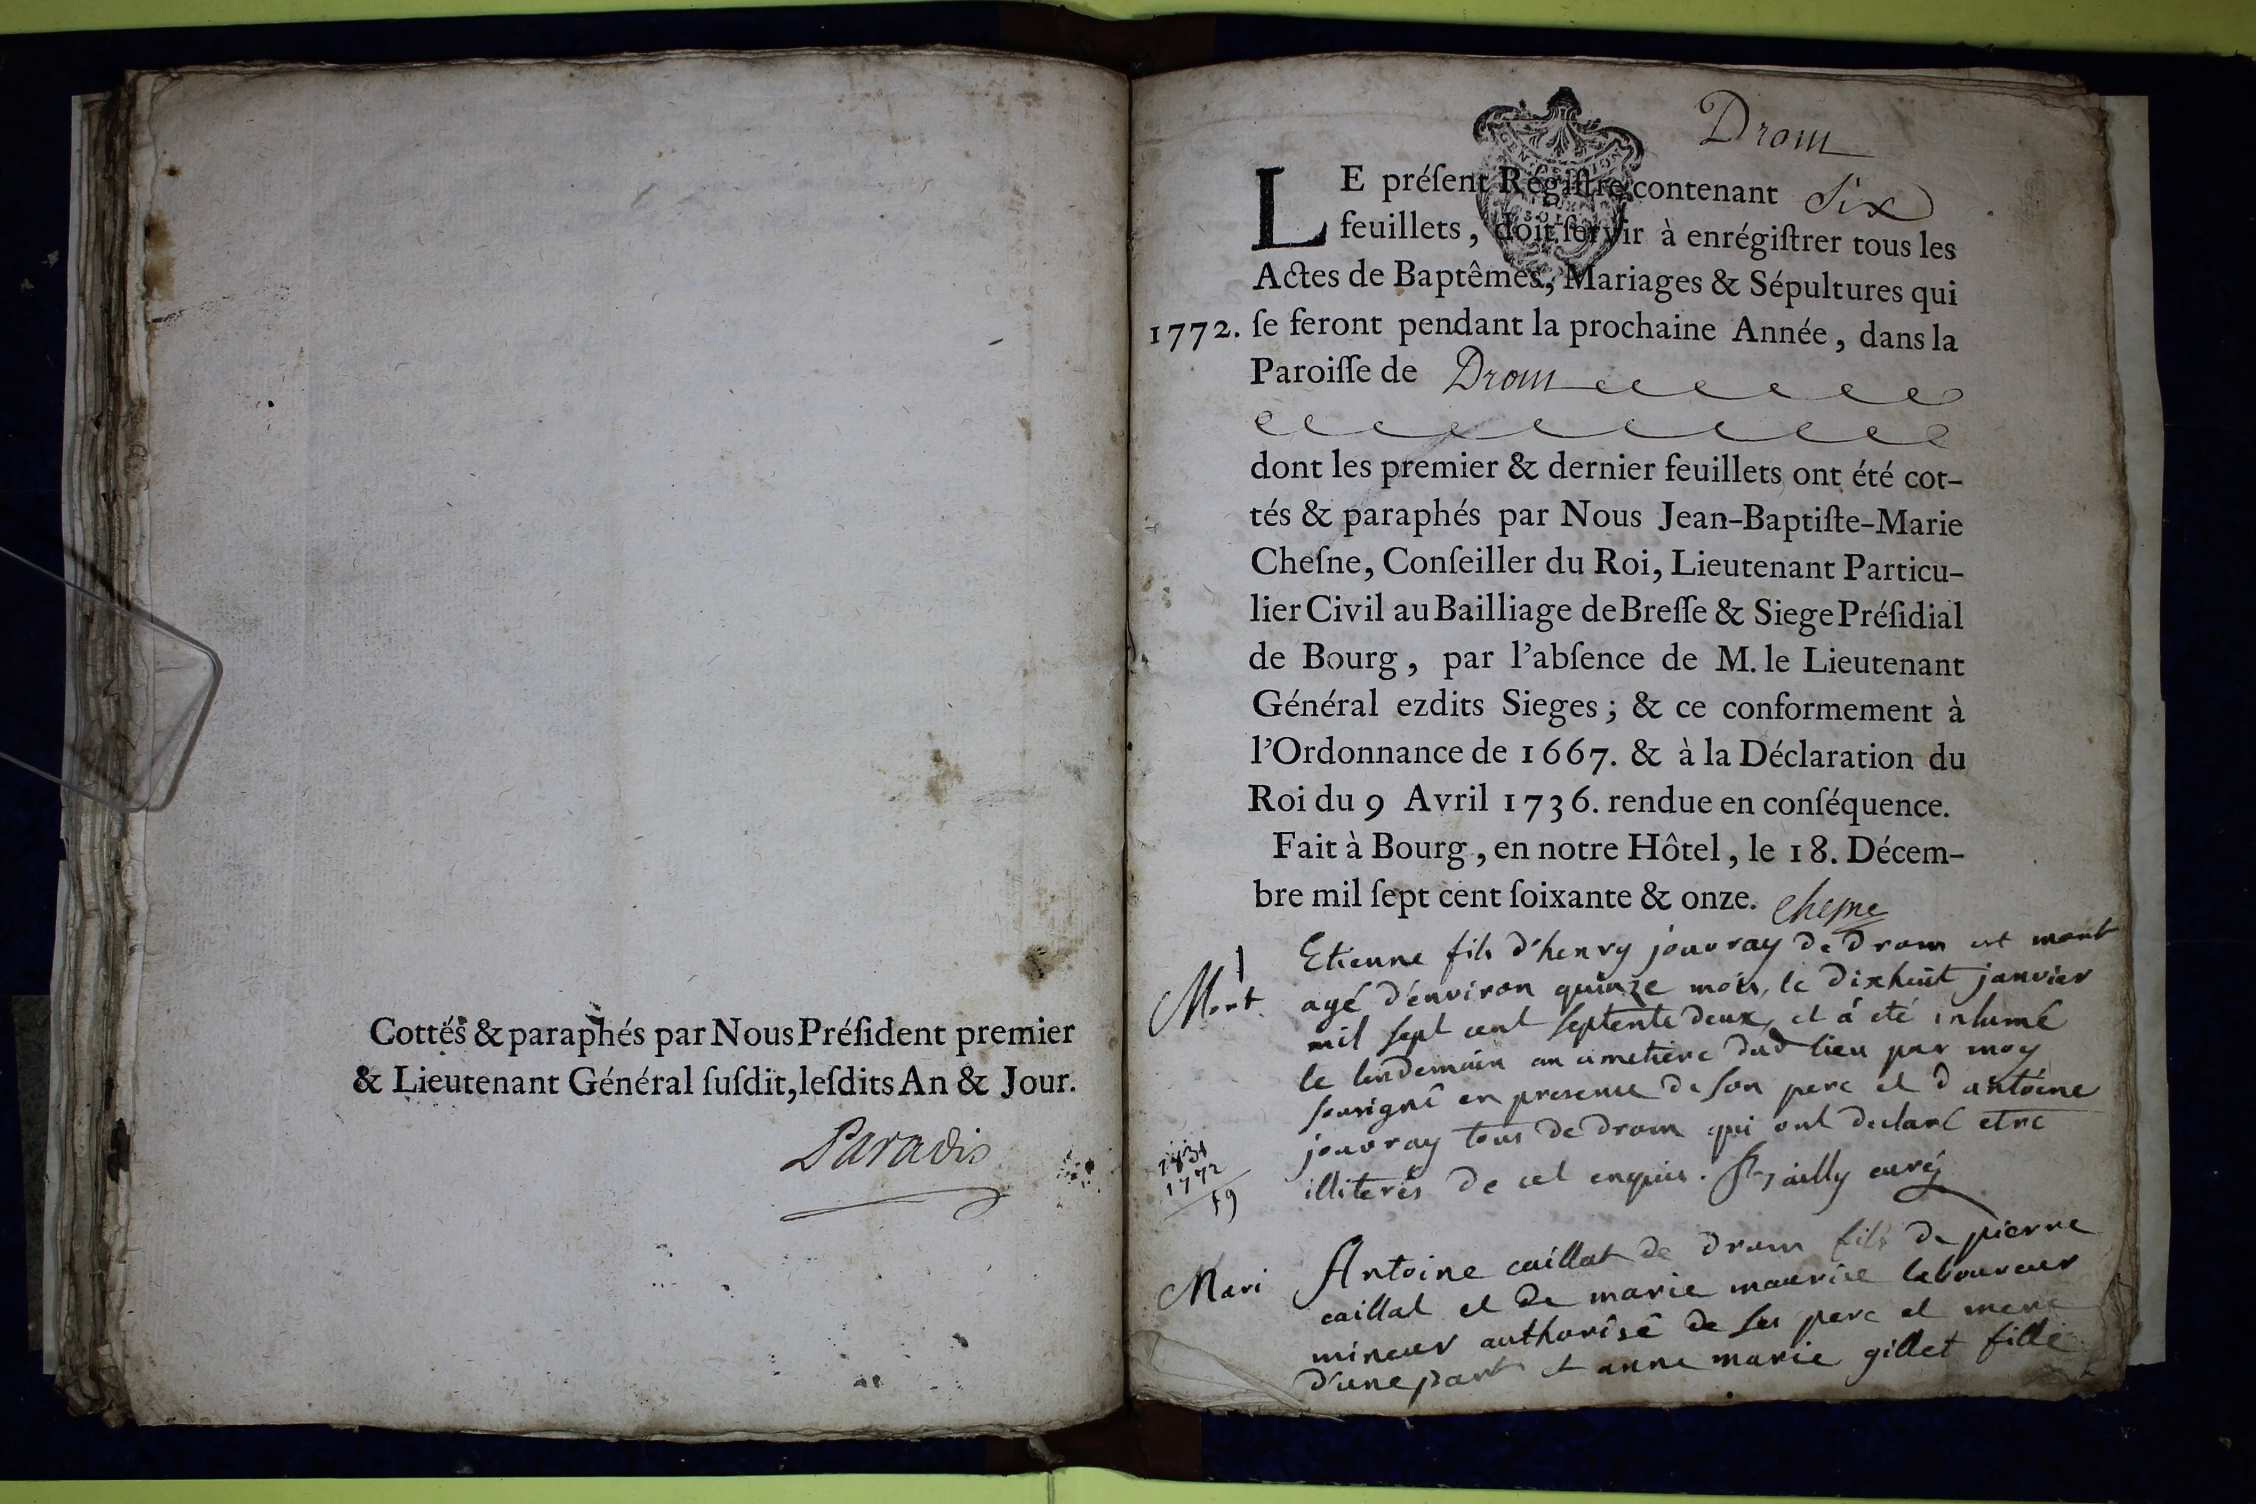 Cottés & paraphés par Nous Préſident premier
& Lieutenant Général ſuſdit, leſdits An & Jour.
Paradis
Drom
LE préſent Régiſtre contenant Six
feuillets, doit ſervir à enrégiſtrer tous les
Actes de Baptêmes, Mariages & Sépultures qui
1772. ſe feront pendant la prochaine Année, dans la
Paroiſſe de Drom
dont les premier & dernier feuillets ont été cot-
tés & paraphés par Nous Jean-Baptiſte-Marie
Cheſne, Conſeiller du Roi, Lieutenant Particu-
lier Civil au Bailliage de Breſſe & Siege Préſidial
de Bourg, par l'abſence de M. le Lieutenant
Général ezdits Sieges; & ce conformement à
l'Ordonnance de 1667. & à la Déclaration du
Roi du 9 Avril 1736. rendue en conſéquence.
Fait à Bourg, en notre Hôtel, le 18. Décem-
bre mil ſept cent ſoixante & onze. Chesne
1
Mort
Etienne fils d'henry jouvray de drom est mort
agé d'environ quinze mois, le dixhuit janvier
mil sept cent septente deux, et á eté inhumé
le lendemain au cimetiere dud lieu par moy
sousigné en presence de son pere et d'antoine
jouvray tous de drom qui ont declaré etre
illiterés de cel enquis. curé
1772
59
Mari
Antoine caillat de drom fils de pierre
caillat et de marie maurice laboureur
mineur authorisé de ses pere et mere
d'une part et anne marie gillet fille